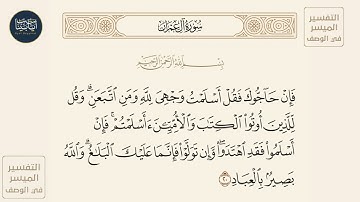 سورة آل عمران
التفسير
الميسر
في الوصف
بسم الله الرحمن الرحيم
فَإِنْ حَآجُّوكَ فَقُلْ أَسْلَمْتُ وَجْهِيَ لِلَّهِ وَمَنِ ٱتَّبَعَنِ ۗ وَقُل
لِّلَّذِينَ أُوتُوا۟ ٱلْكِتَٰبَ وَٱلْأُمِّيِّـۧنَ ءَأَسْلَمْتُمْ ۚ فَإِنْ
أَسْلَمُوا۟ فَقَدِ ٱهْتَدَوا۟ ۖ وَّإِن تَوَلَّوْا۟ فَإِنَّمَا عَلَيْكَ ٱلْبَلَٰغُ ۗ وَٱللَّهُ
بَصِيرٌۢ بِٱلْعِبَادِ ٢٠
التفسير
الميسر
في الوصف